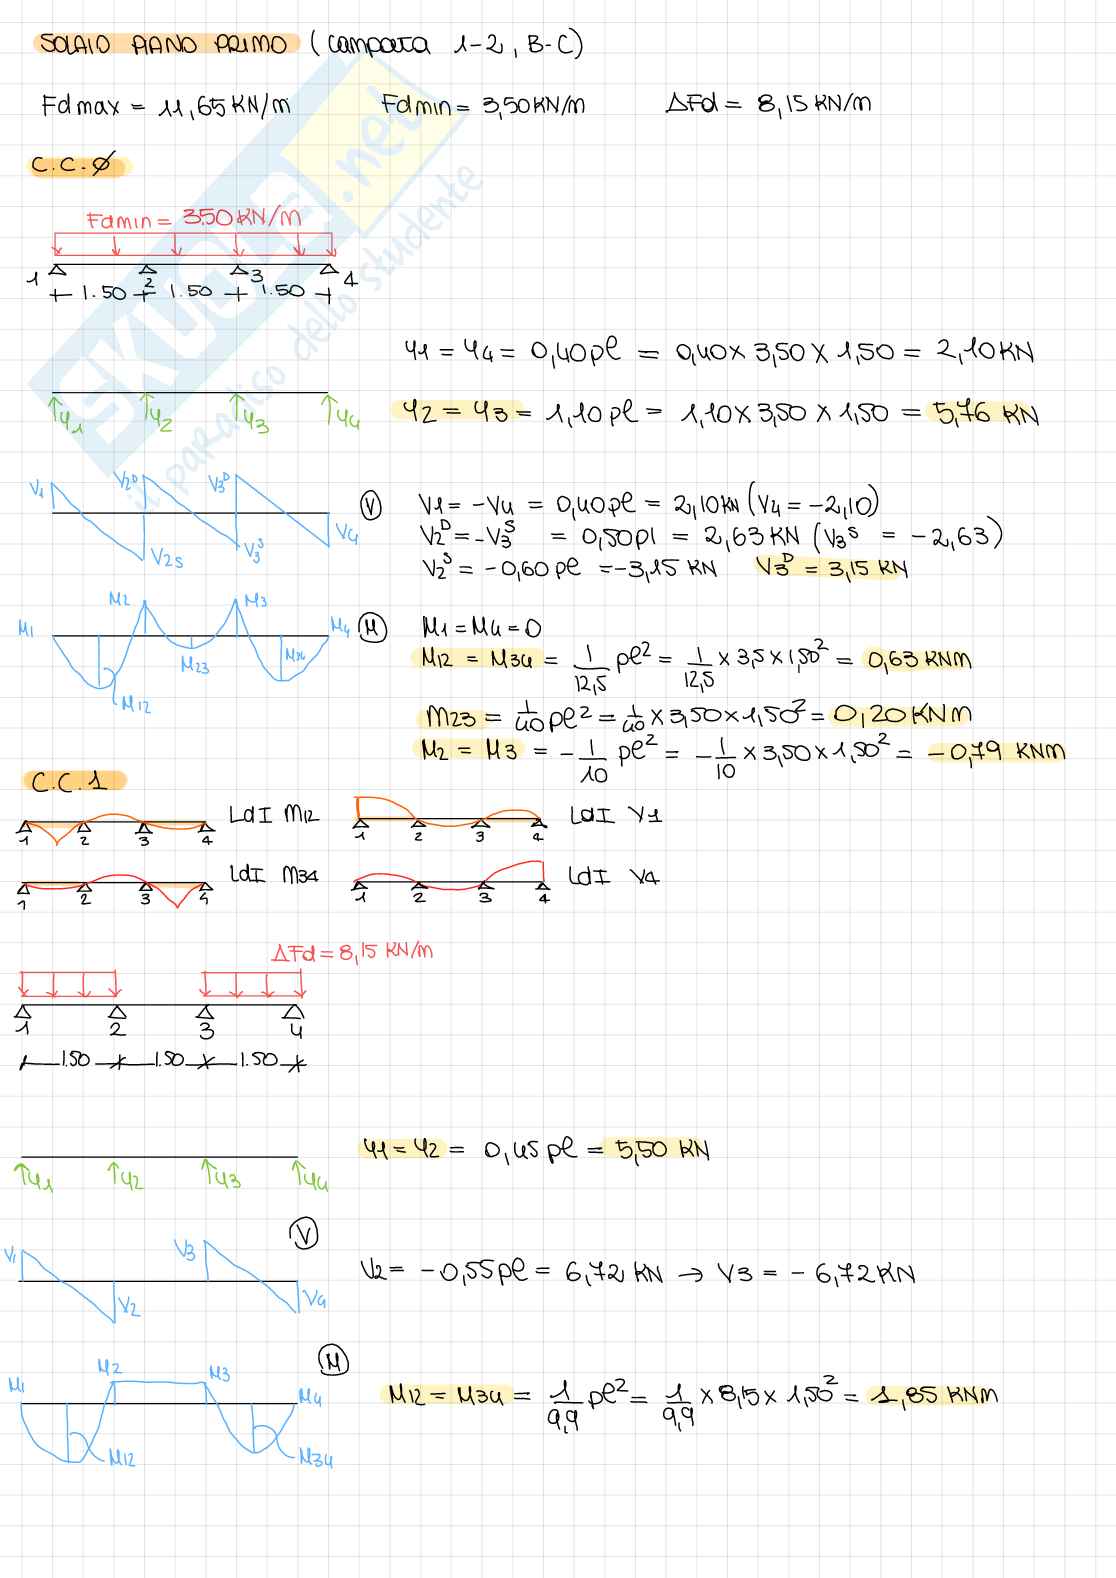 SOLAIO PIANO PRIMO (campata 1-2, B-C)
Fdmax = 11,65 KN/m Fdmin = 3,50 KN/m ΔFd = 8,15 KN/m
C.C.∅
Fdmin = 3.50 KN/m
1 2 3 4
1.50 1.50 1.50
Y1 = Y4 = 0,40pl = 0,40 x 3,50 x 1,50 = 2,10 KN
Y1 Y2 Y3 Y4
Y2 = Y3 = 1,10pl = 1,10 x 3,50 x 1,50 = 5,76 KN
V1 V2D V3D V2S V3S V4
Ⓥ V1 = -V4 = 0,40pl = 2,10 KN (V4 = -2,10)
V2D = -V3S = 0,50pl = 2,63 KN (V3S = -2,63)
V2S = -0,60pl = -3,15 KN V3D = 3,15 KN
M1 M2 M3 M4 M12 M23 M34
Ⓜ M1 = M4 = 0
M12 = M34 = 1/12,5 pl² = 1/12,5 x 3,5 x 1,50² = 0,63 KNm
M23 = 1/40 pl² = 1/40 x 3,50 x 1,50² = 0,20 KNm
M2 = M3 = -1/10 pl² = -1/10 x 3,50 x 1,50² = -0,79 KNm
C.C.1
1 2 3 4 LdI M12 1 2 3 4 LdI V1
1 2 3 4 LdI M34 1 2 3 4 LdI V4
ΔFd = 8,15 KN/m
1 2 3 4
1.50 1.50 1.50
Y1 = Y2 = 0,45pl = 5,50 KN
Y1 Y2 Y3 Y4
V1 V3 V2 V4 Ⓥ
V2 = -0,55pl = 6,72 KN → V3 = -6,72 KN
M1 M2 M3 M4 M12 M34 Ⓜ
M12 = M34 = 1/9,9 pl² = 1/9,9 x 8,15 x 1,50² = 1,85 KNm
SKUOLA.net
il paradiso dello studente